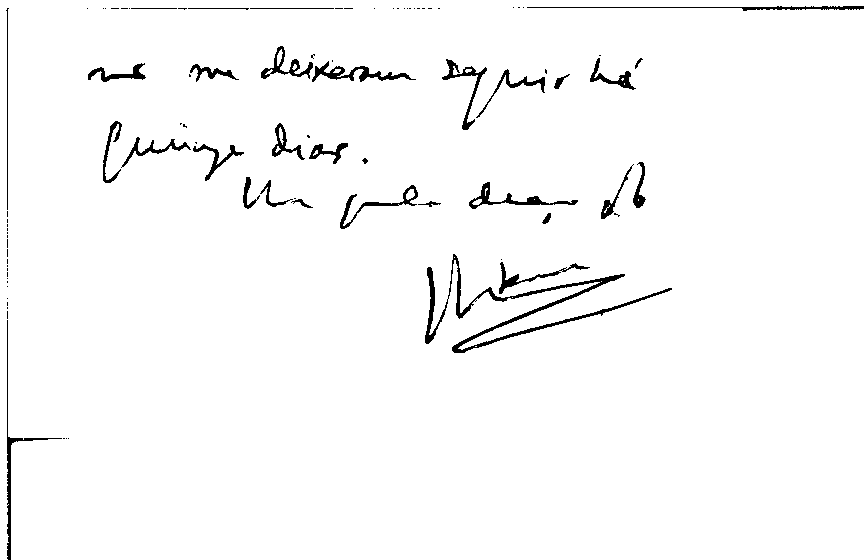 me deixaram seguir há
quinze dias.
Um grande abraço do